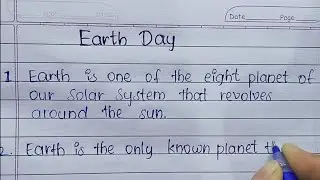 Date Page
Earth Day
1 Earth is one of the eight planet of
our Solar System that revolves
around the sun.
2. Earth is the only known planet th